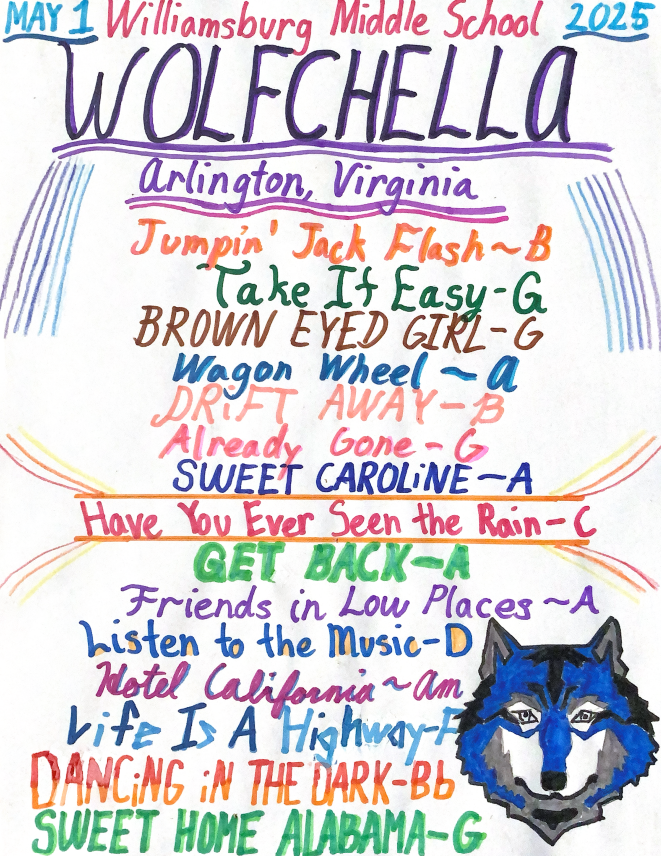 MAY 1 Williamsburg Middle School 2025
WOLFCHELLA
Arlington, Virginia
Jumpin' Jack Flash~B
Take It Easy-G
BROWN EYED GIRL-G
Wagon Wheel ~ A
DRiFT AWAY-B
Already Gone-G
SWEET CAROLiNE-A
Have You Ever Seen the Rain-C
GET BACK-A
Friends in Low Places ~A
Listen to the Music-D
Hotel California~Am
Life Is A Highway-F
DANCiNG iN THE DARK-Bb
SWEET HOME ALABAMA-G